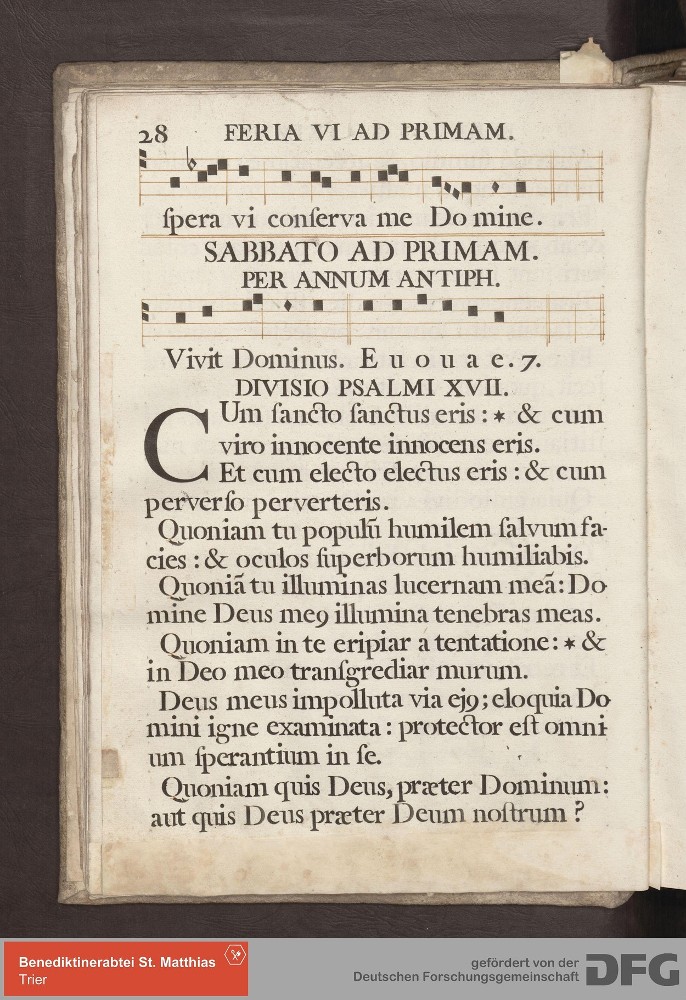 28 FERIA VI AD PRIMAM.
ſpera vi conſerva me Do mine.
SABBATO AD PRIMAM.
PER ANNUM ANTIPH.
Vivit Dominus. E u o u a e. 7.
DIVISIO PSALMI XVII.
CUm ſancto ſanctus eris : * & cum
viro innocente innocens eris.
Et cum electo electus eris : & cum
perverſo perverteris.
Quoniam tu populũ humilem ſalvum fa-
cies : & oculos ſuperborum humiliabis.
Quoniã tu illuminas lucernam meã: Do
mine Deus meꝯ illumina tenebras meas.
Quoniam in te eripiar a tentatione: * &
in Deo meo tranſgrediar murum.
Deus meus impolluta via ejꝯ; eloquia Do
mini igne examinata : protector eſt omni
um ſperantium in ſe.
Quoniam quis Deus, præter Dominum:
aut quis Deus præter Deum noſtrum ?
Benediktinerabtei St. Matthias
Trier
gefördert von der
Deutschen Forschungsgemeinschaft
DFG